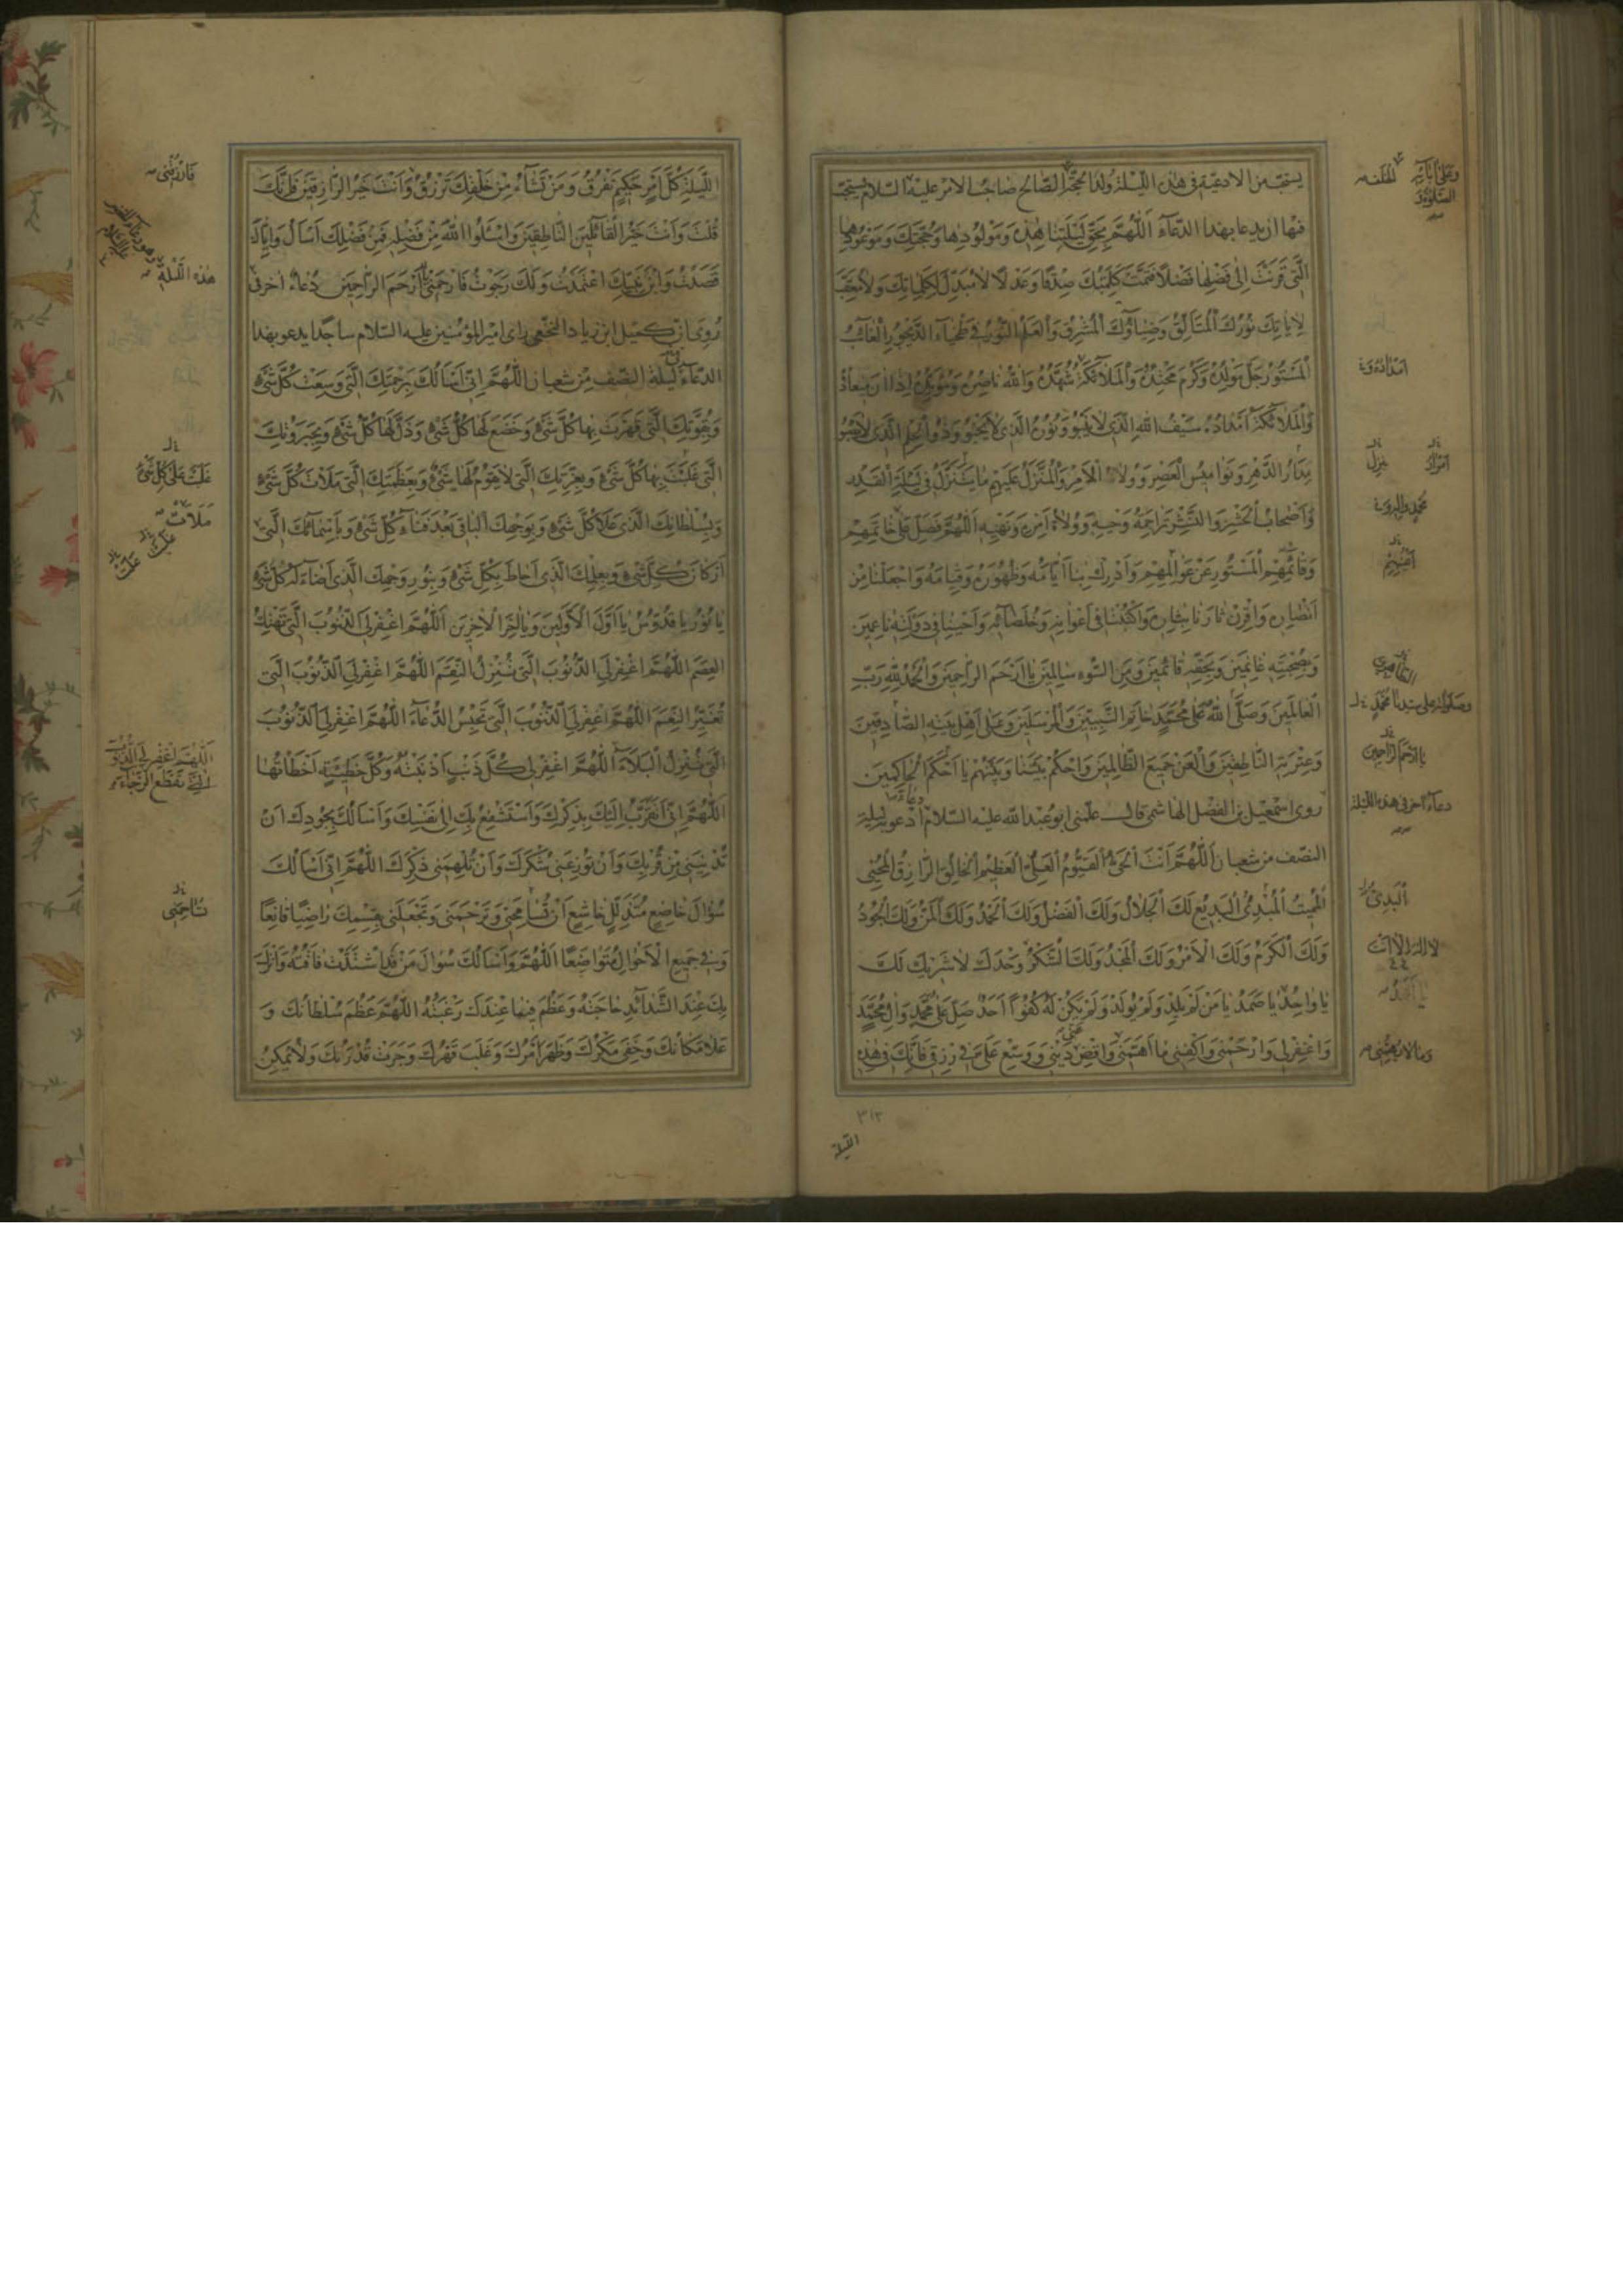 يستحب من الادعية في هذه الليلة ولد الحجة الصالح صاحب الامر عليه السلام يستحب
فيها ان يدعا بهذا الدعاء اللّهُمَّ بِحَقِّ لَيْلَتِنا هٰذِهِ وَمَوْلُودِها وَحُجَّتِكَ وَمَوْعُودِها
الَّتي قَرَنْتَ اِلىٰ فَضْلِها فَضْلاً فَتَمَّتْ كَلِمَتُكَ صِدْقًا وَعَدْلًا لا مُبَدِّلَ لِكَلِماتِكَ وَلا مُعَقِّبَ
لِاٰياتِكَ نُورُكَ الْمُتَاَلِّقُ وَضِياؤُكَ الْمُشْرِقُ وَالْعَلَمُ النُّورُ في طَخْياءِ الدَّيْجُورِ الْغائِبُ
الْمَسْتُورُ جَلَّ مَوْلِدُهُ وَكَرُمَ مَحْتِدُهُ وَالْمَلائِكَةُ شُهَّدُهُ وَاللهُ ناصِرُهُ وَمُؤَيِّدُهُ اِذا اٰنَ ميعادُهُ
وَالْمَلائِكَةُ اَمْدادُهُ سَيْفُ اللهِ الَّذي لا يَنْبُو وَنُورُهُ الَّذي لا يَخْبُو وَذُو الْحِلْمِ الَّذي لا يَصْبُو
مَدارُ الدَّهْرِ وَنَواميسُ الْعَصْرِ وَوُلاةُ الْاَمْرِ وَالْمُنَزَّلُ عَلَيْهِمْ ما يَتَنَزَّلُ في لَيْلَةِ الْقَدْرِ
وَاَصْحابُ الْحَشْرِ وَالنَّشْرِ تَراجِمَةُ وَحْيِهِ وَوُلاةُ اَمْرِهِ وَنَهْيِهِ اَللّهُمَّ فَصَلِّ عَلىٰ خاتِمِهِمْ
وَقائِمِهِمُ الْمَسْتُورِ عَنْ عَوالِمِهِمْ وَاَدْرِكْ بِنا اَيّامَهُ وَظُهُورَهُ وَقِيامَهُ وَاجْعَلْنا مِنْ
اَنْصارِهِ وَاقْرِنْ ثارَنا بِثارِهِ وَاكْتُبْنا في اَعْوانِهِ وَخُلَصائِهِ وَاَحْيِنا في دَوْلَتِهِ ناعِمينَ
وَبِصُحْبَتِهِ غانِمينَ وَبِحَقِّهِ قائِمينَ وَمِنَ السُّوءِ سالِمينَ يا اَرْحَمَ الرّاحِمينَ وَالْحَمْدُ للهِ رَبِّ
الْعالَمينَ وَصَلَّى اللهُ عَلىٰ مُحَمَّدٍ خاتَمِ النَّبِيّينَ وَالْمُرْسَلينَ وَعَلىٰ اَهْلِ بَيْتِهِ الصّادِقينَ
وَعِتْرَتِهِ النّاطِقينَ وَالْعَنْ جَميعَ الظّالِمينَ وَاحْكُمْ بَيْنَنا وَبَيْنَهُمْ يا اَحْكَمَ الْحاكِمينَ
روى اسمعيل بن الفضل الهاشمي قال علمني ابو عبد الله عليه السلام دعاء ادعو به ليلة
النصف من شعبان اَللّهُمَّ اَنْتَ الْحَيُّ الْقَيُّومُ الْعَلِيُّ الْعَظيمُ الْخالِقُ الرّازِقُ الْمُحْيي
الْمُميتُ الْمُبْدِئُ الْبَديعُ لَكَ الْجَلالُ وَلَكَ الْفَضْلُ وَلَكَ الْحَمْدُ وَلَكَ الْمَنُّ وَلَكَ الْجُودُ
وَلَكَ الْكَرَمُ وَلَكَ الْاَمْرُ وَلَكَ الْمَجْدُ وَلَكَ الشُّكْرُ وَحْدَكَ لا شَريكَ لَكَ
يا واحِدُ يا صَمَدُ يا مَنْ لَمْ يَلِدْ وَلَمْ يُولَدْ وَلَمْ يَكُنْ لَهُ كُفُوًا اَحَدٌ صَلِّ عَلىٰ مُحَمَّدٍ وَاٰلِ مُحَمَّدٍ
وَاغْفِرْ لي وَارْحَمْني وَاكْفِني ما اَهَمَّني وَاقْضِ عني دَيْني وَوَسِّعْ عَلَيَّ في رِزْقي فَاِنَّكَ في هٰذِهِ
٣١٢
الليلة
دعاء آخر في هذه الليلة
يا ارحم الراحمين
لا اله الا انت
اللَّيْلَةِ كُلَّ اَمْرٍ حَكيمٍ تَفْرُقُ وَمَنْ تَشاءُ مِنْ خَلْقِكَ تَرْزُقُ وَاَنْتَ خَيْرُ الرّازِقينَ فَاِنَّكَ
قُلْتَ وَاَنْتَ خَيْرُ الْقائِلينَ النّاطِقينَ وَاسْئَلُوا اللهَ مِنْ فَضْلِهِ فَمِنْ فَضْلِكَ اَسْاَلُ وَاِيّاكَ
قَصَدْتُ وَابْنَ نَبِيِّكَ اعْتَمَدْتُ وَلَكَ رَجَوْتُ فَارْحَمْني يا اَرْحَمَ الرّاحِمينَ دُعاء اخر في
رُوِيَ ان كميل ابن زياد النخعي رأى امير المؤمنين عليه السلام ساجدا يدعو بهذا
الدعاء في ليلة النصف من شعبان اللّهُمَّ اِنّي اَسْاَلُكَ بِرَحْمَتِكَ الَّتي وَسِعَتْ كُلَّ شَيْءٍ
وَبِقُوَّتِكَ الَّتي قَهَرْتَ بِها كُلَّ شَيْءٍ وَخَضَعَ لَها كُلُّ شَيْءٍ وَذَلَّ لَها كُلُّ شَيْءٍ وَبِجَبَرُوتِكَ
الَّتي غَلَبْتَ بِها كُلَّ شَيْءٍ وَبِعِزَّتِكَ الَّتي لا يَقُومُ لَها شَيْءٌ وَبِعَظَمَتِكَ الَّتي مَلَأَتْ كُلَّ شَيْءٍ
وَبِسُلْطانِكَ الَّذي عَلا كُلَّ شَيْءٍ وَبِوَجْهِكَ الْباقي بَعْدَ فَناءِ كُلِّ شَيْءٍ وَبِاَسْمائِكَ الَّتي
اَرْكانَ كُلِّ شَيْءٍ وَبِعِلْمِكَ الَّذي اَحاطَ بِكُلِّ شَيْءٍ وَبِنُورِ وَجْهِكَ الَّذي اَضاءَ لَهُ كُلُّ شَيْءٍ
يا نُورُ يا قُدُّوسُ يا اَوَّلَ الْاَوَّلينَ وَيا اٰخِرَ الْاٰخِرينَ اَللّهُمَّ اغْفِرْ لِيَ الذُّنُوبَ الَّتي تَهْتِكُ
الْعِصَمَ اَللّهُمَّ اغْفِرْ لِيَ الذُّنُوبَ الَّتي تُنْزِلُ النِّقَمَ اَللّهُمَّ اغْفِرْ لِيَ الذُّنُوبَ الَّتي
تُغَيِّرُ النِّعَمَ اَللّهُمَّ اغْفِرْ لِيَ الذُّنُوبَ الَّتي تَحْبِسُ الدُّعاءَ اَللّهُمَّ اغْفِرْ لِيَ الذُّنُوبَ
الَّتي تُنْزِلُ الْبَلاءَ اَللّهُمَّ اغْفِرْ لي كُلَّ ذَنْبٍ اَذْنَبْتُهُ وَكُلَّ خَطيئَةٍ اَخْطَأْتُها
اَللّهُمَّ اِنّي اَتَقَرَّبُ اِلَيْكَ بِذِكْرِكَ وَاَسْتَشْفِعُ بِكَ اِلىٰ نَفْسِكَ وَاَسْاَلُكَ بِجُودِكَ اَنْ
تُدْنِيَني مِنْ قُرْبِكَ وَاَنْ تُوزِعَني شُكْرَكَ وَاَنْ تُلْهِمَني ذِكْرَكَ اَللّهُمَّ اِنّي اَسْاَلُكَ
سُؤالَ خاضِعٍ مُتَذَلِّلٍ خاشِعٍ اَنْ تُسامِحَني وَتَرْحَمَني وَتَجْعَلَني بِقِسْمِكَ راضِيًا قانِعًا
وَفي جَميعِ الْاَحْوالِ مُتَواضِعًا اَللّهُمَّ وَاَسْاَلُكَ سُؤالَ مَنِ اشْتَدَّتْ فاقَتُهُ وَاَنْزَلَ
بِكَ عِنْدَ الشَّدائِدِ حاجَتَهُ وَعَظُمَ فيما عِنْدَكَ رَغْبَتُهُ اَللّهُمَّ عَظُمَ سُلْطانُكَ وَ
عَلا مَكانُكَ وَخَفِيَ مَكْرُكَ وَظَهَرَ اَمْرُكَ وَغَلَبَ قَهْرُكَ وَجَرَتْ قُدْرَتُكَ وَلا يُمْكِنُ
فَارْزُقْني
هذه الليلة
اللهم اغفر لي الذنوب
التي تقطع الرجاء